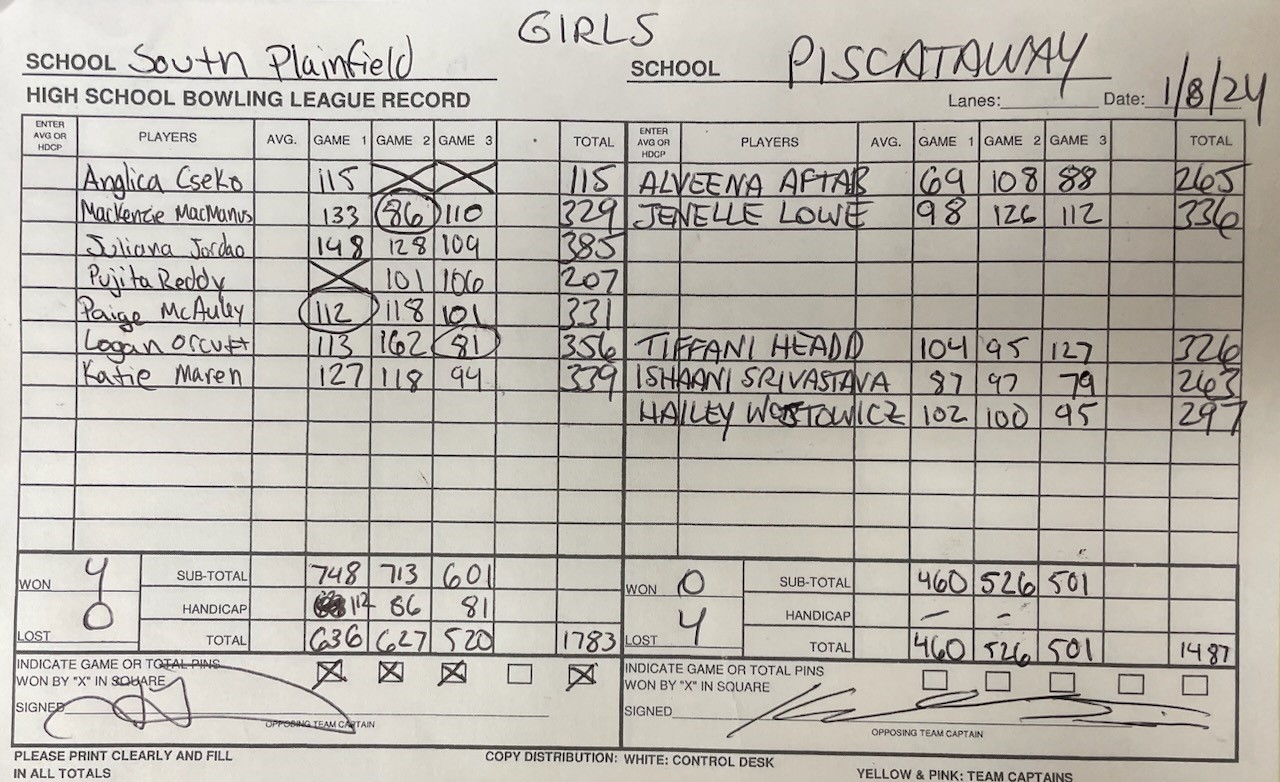 GIRLS
SCHOOL South Plainfield SCHOOL PISCATAWAY
HIGH SCHOOL BOWLING LEAGUE RECORD Lanes: Date: 1/8/24
ENTER AVG OR HDCP PLAYERS AVG. GAME 1 GAME 2 GAME 3 TOTAL ENTER AVG OR HDCP PLAYERS AVG. GAME 1 GAME 2 GAME 3 TOTAL
Anglica Cseko 115 X X 115 ALVEENA AFTAB 69 108 88 265
Mackenzie MacManus 133 86 110 329 JENELLE LOWE 98 126 112 336
Juliana Jordao 148 128 109 385
Pujita Reddy X 101 106 207
Paige McAuley 112 118 101 331
Logan Orcutt 113 162 81 356 TIFFANI HEADD 104 95 127 326
Katie Maren 127 118 94 339 ISHAANI SRIVASTAVA 87 97 79 263
HAILEY 102 100 95 297
WON 4 SUB-TOTAL 748 713 601 WON 0 SUB-TOTAL 460 526 501
HANDICAP 112 86 81 HANDICAP – –
LOST 0 TOTAL 636 627 520 1783 LOST 4 TOTAL 460 526 501 1487
INDICATE GAME OR TOTAL PINS INDICATE GAME OR TOTAL PINS
WON BY "X" IN SQUARE X X X X WON BY "X" IN SQUARE
SIGNED SIGNED
OPPOSING TEAM CAPTAIN OPPOSING TEAM CAPTAIN
PLEASE PRINT CLEARLY AND FILL COPY DISTRIBUTION: WHITE: CONTROL DESK
IN ALL TOTALS YELLOW & PINK: TEAM CAPTAINS